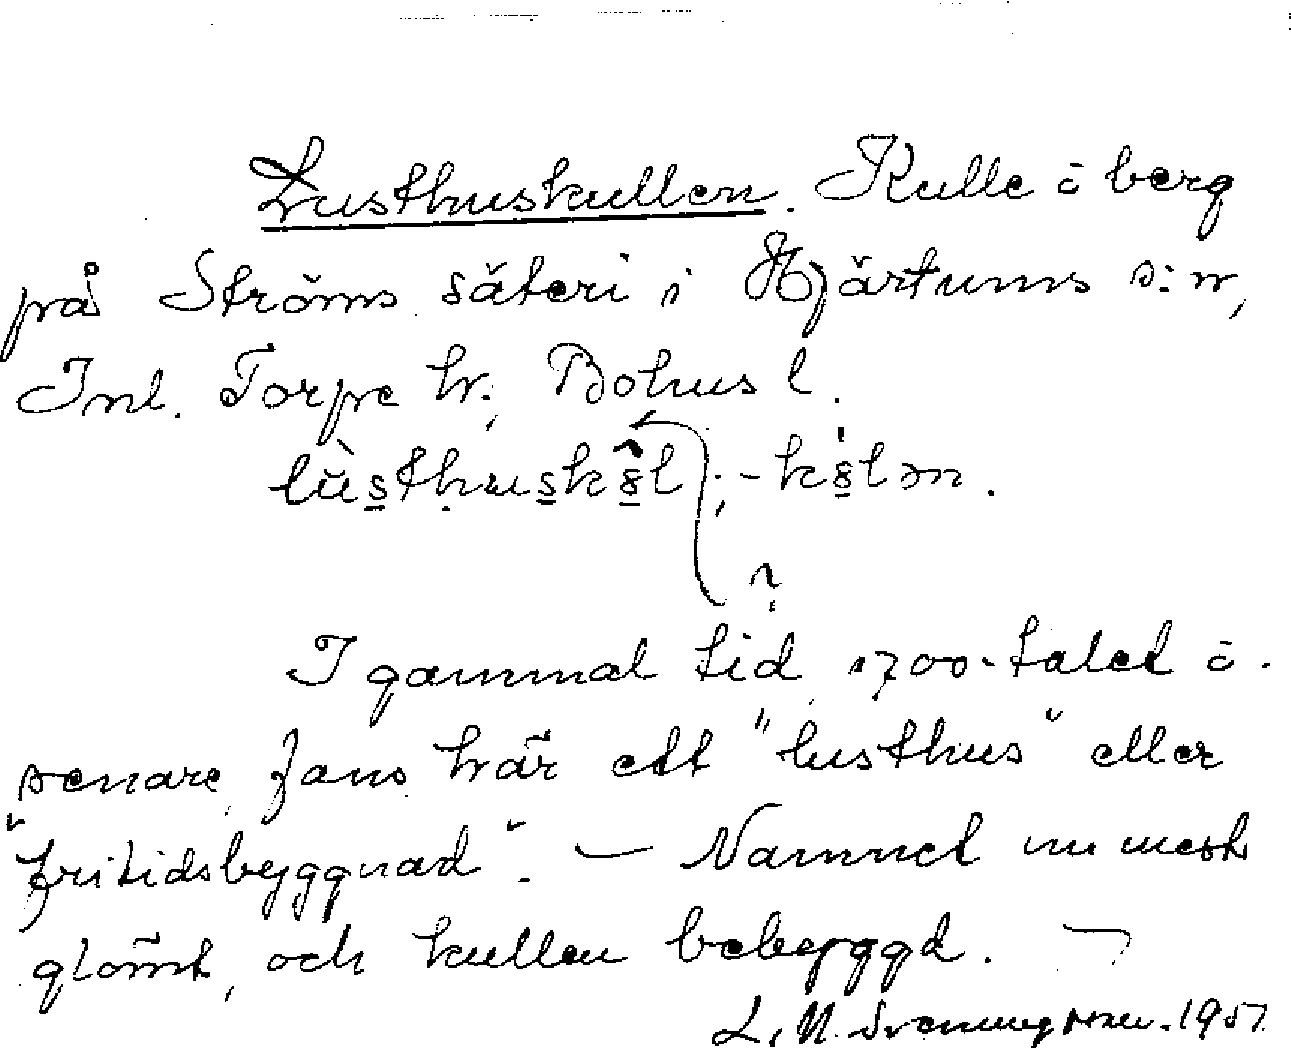 Lusthuskullen. Kulle o berg
på Ströms säteri i Hjärtums s:n,
Inl. Torpe hr., Bohus l.
I gammal tid, 1700-talet o.
senare, fans här ett "lusthus" eller
"fritidsbyggnad". — Namnet nu mest
glömt, och kullen bebyggd.